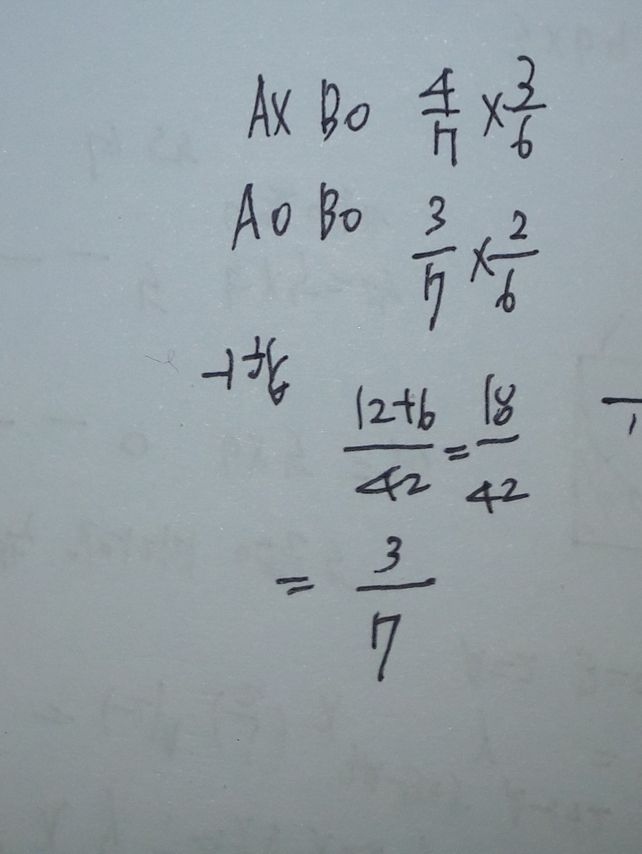 AX BO 4/7 × 3/6
AO BO 3/7 × 2/6
12+6/42 = 18/42
= 3/7